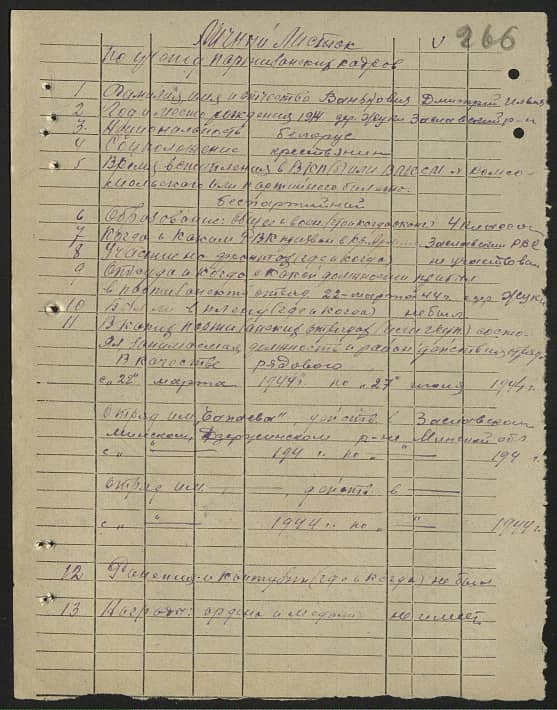 Личный Листок V 266
по учету партизанских кадров
1 Фамилия имя и отчество Ванькович Дмитрий
2 Год и место рождения 1914 дер. Жуки Заславский р-н
3. Национальность беларус
4 Соцположение крестьянин
5 Время вступления в ВКП(б) или ВЛКСМ № комсо-
мольского или партийного билета.
беспартийный
6 Образование: общее и воен (где и когда окон) 4 класса
7 Когда и каким РВК призван в Кр. Армию Заславским РВК
8 Участие на фронтах (где и когда) не участвовал
9 Откуда и когда в какой должности прибыл
в партизанский отряд 22 марта 44 г. дер. Жуки
10 Был ли в плену (где и когда) не был
11 В каких партизанских отрядах состо-
ял занимаемая должность и район действия отряда
В качестве рядового
с "22" марта 1944 г. по "27" июня 1944 г.
отряд им. действ. в Заславском
Минском, Дзержинском р-не Минской обл
с " " 194 г. по " " 194 г.
отряд им. , действ в
с " " 1944 г. по " " 1944 г.
12 Ранения и контузии (где и когда) не был
13 Награды: ордена и медали не имеет